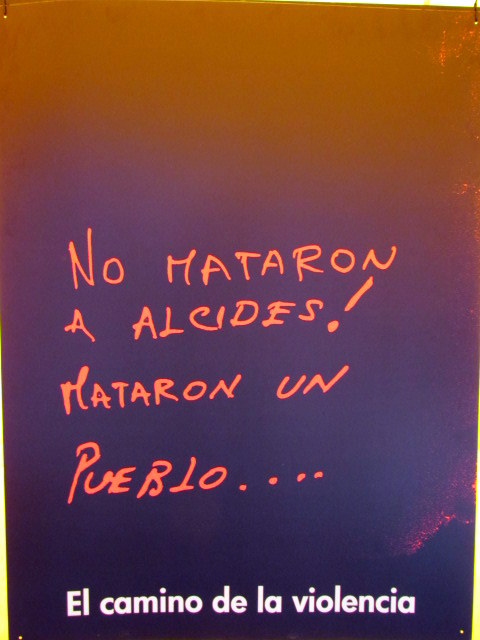 No MATARON
A ALCIDES!
MATARON UN
PUEBLO....
El camino de la violencia